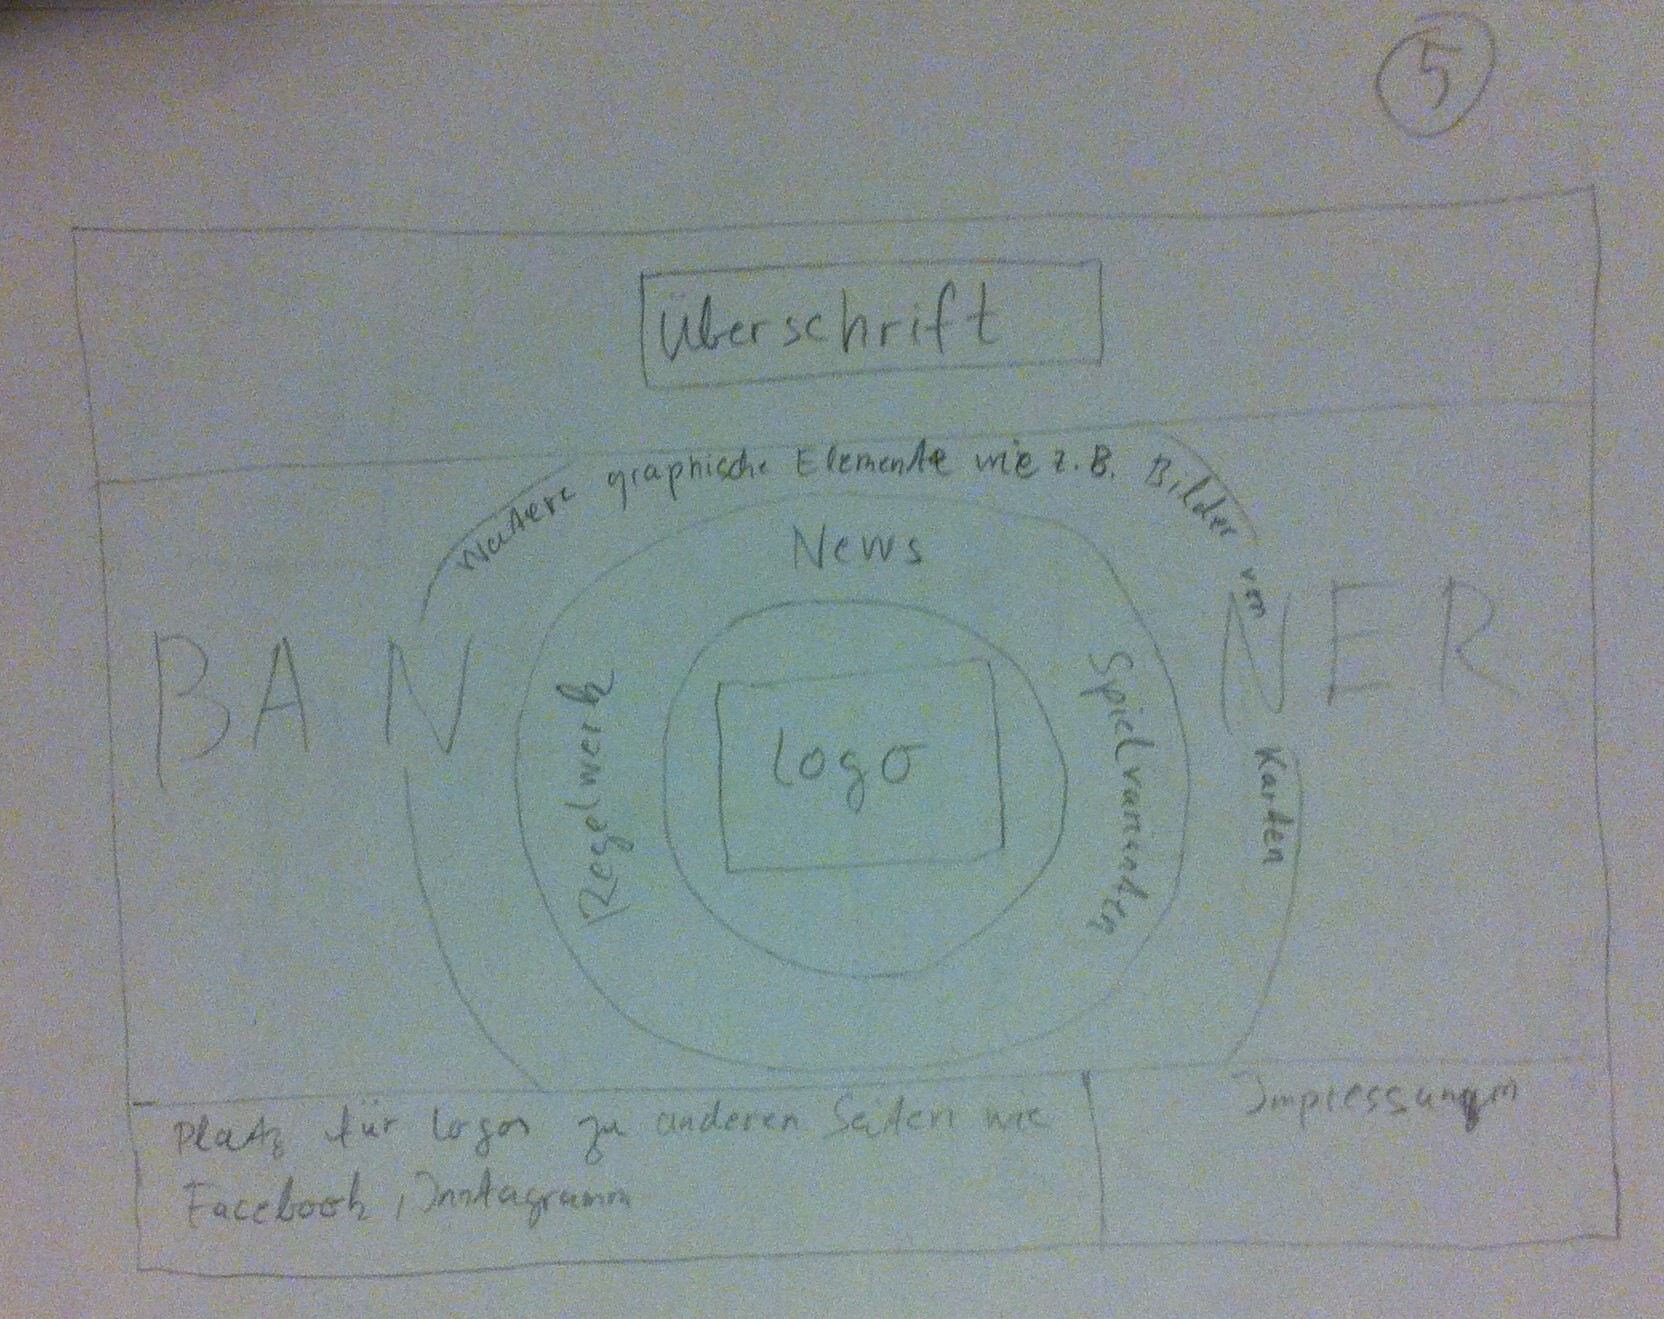 5
Überschrift
Weitere graphische Elemente wie z.B. Bilder von Karten
News
BANNER
Regelwerk
Logo
Spielvarianten
Platz für Logos zu anderen Seiten wie
Facebook, Instagramm